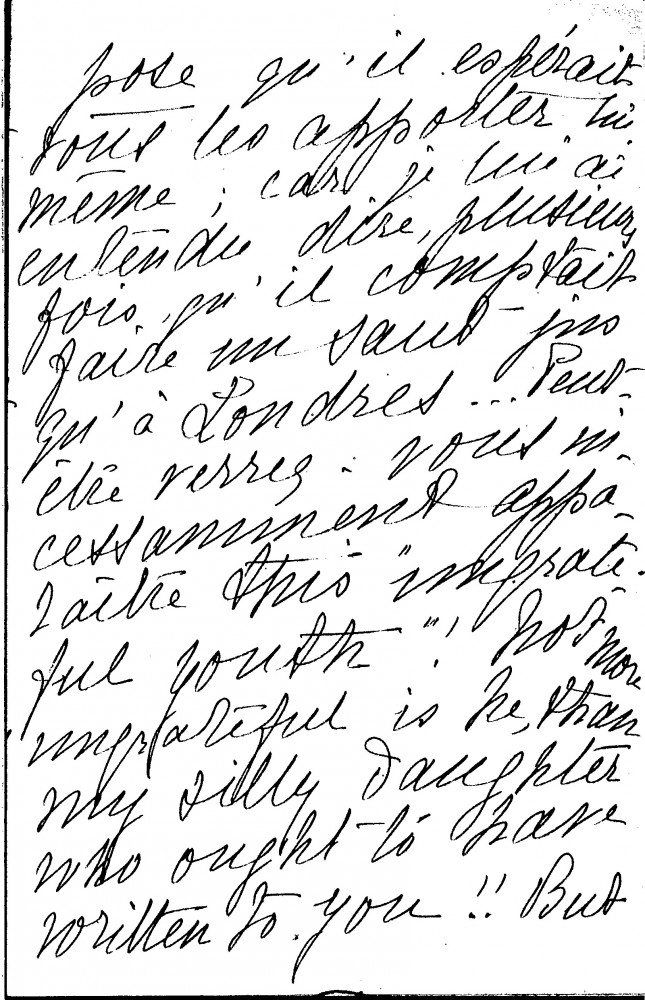 pose qu'il espérait
vous les apporter lui
même ; car je lui ai
entendu dire, plusieurs
fois, qu'il comptait
faire un saut jus
qu'à Londres ... Peut-
être verrez-vous in-
cessamment appa-
raître this "ungrate-
ful youth"! Not more
ungrateful is he, than
my silly daughter
who ought to have
written to you !! But